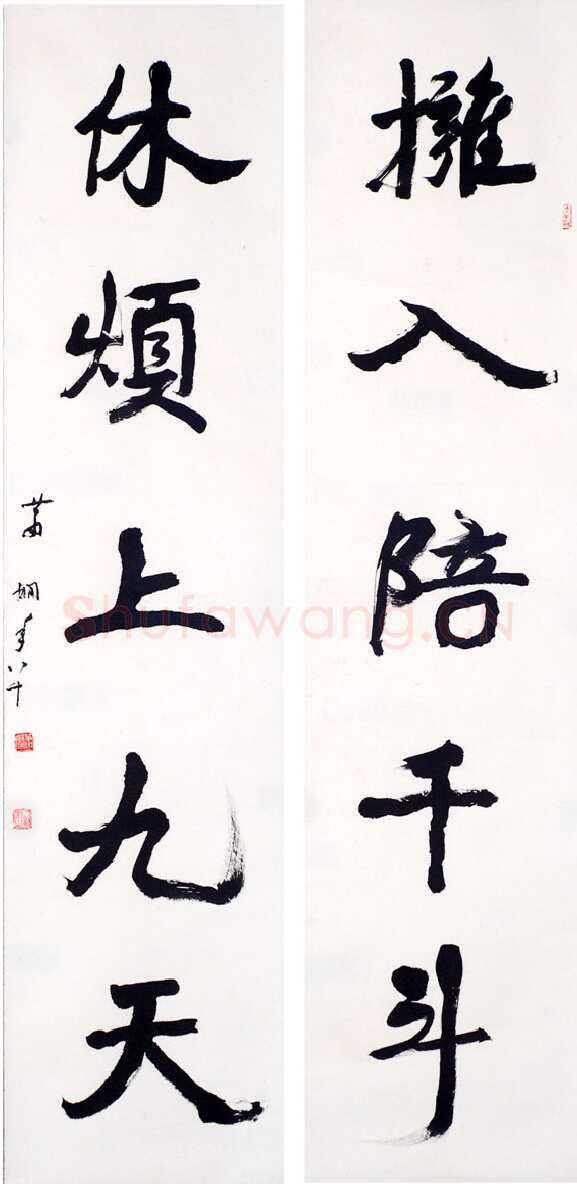 擁入陪千斗
休煩上九天
蕭嫻年八十
Shufawang.CN